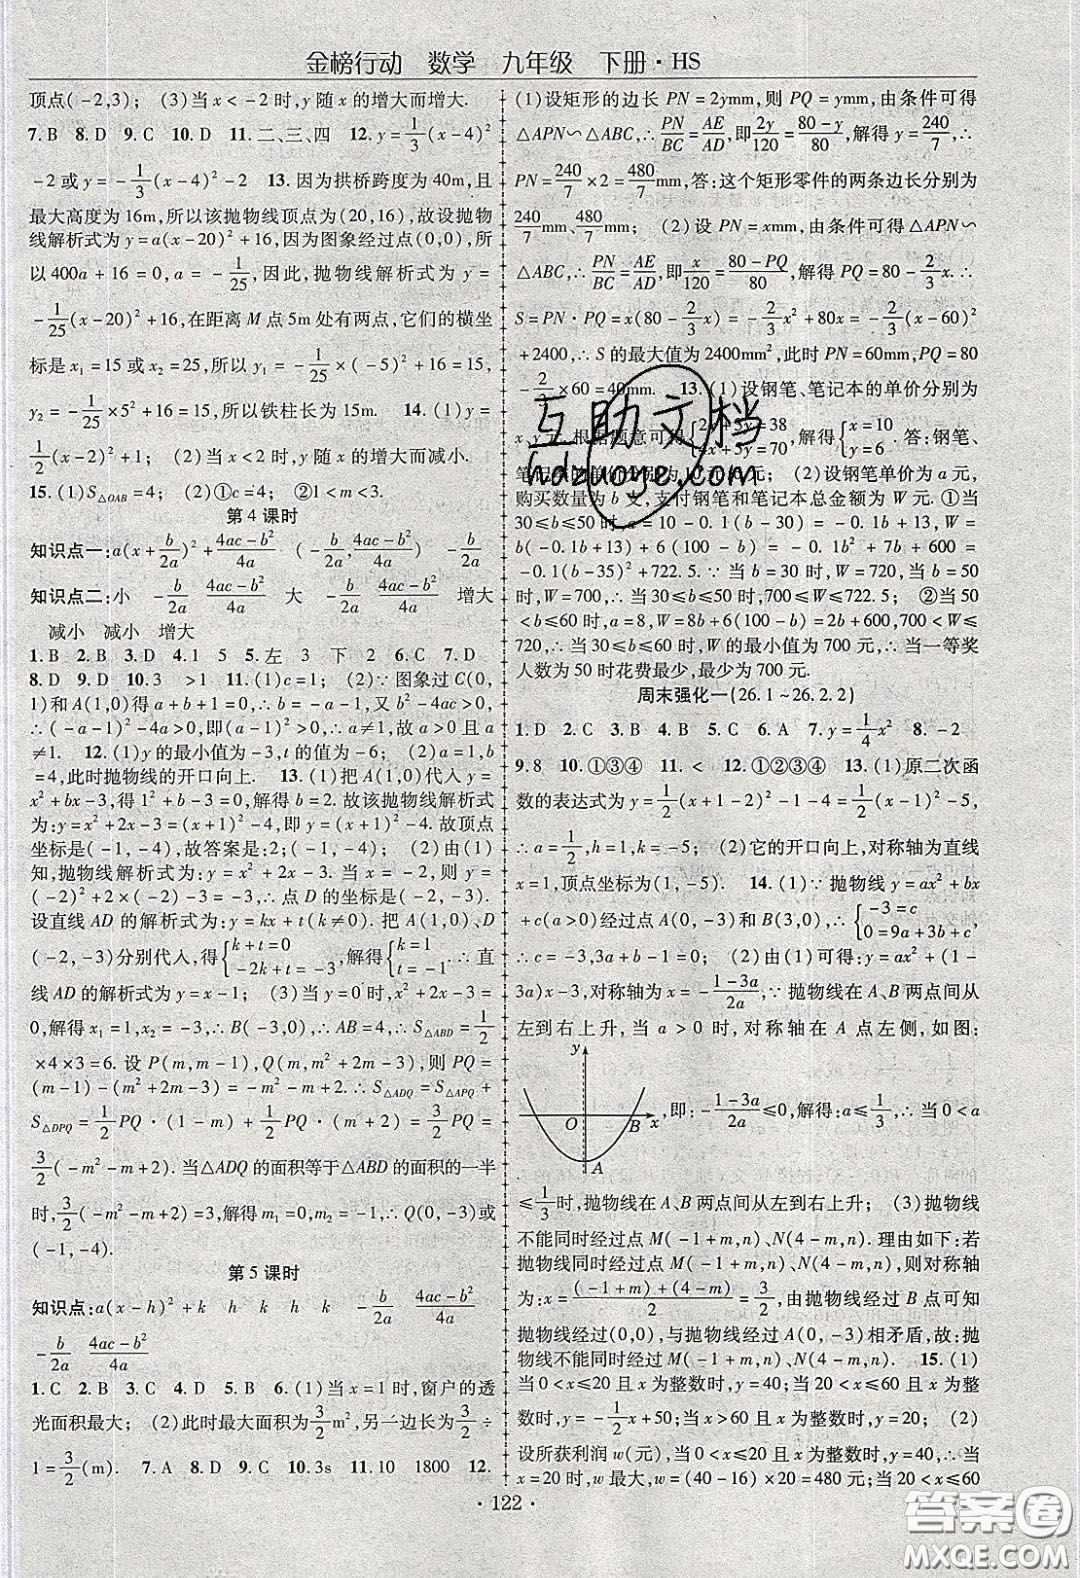 金榜行动 数学 九年级 下册·HS
顶点(-2,3); (3)当x<-2时,y随x的增大而增大.
7.B 8.D 9.C 10.D 11.二、三、四 12.y=1/3(x-4)²
-2或y=-1/3(x-4)²-2 13.因为拱桥跨度为40m,且
最大高度为16m,所以该抛物线顶点为(20,16),故设抛物
线解析式为y=a(x-20)²+16,因为图象经过点(0,0),所
以400a+16=0,a=-1/25,因此,抛物线解析式为y=
-1/25(x-20)²+16,在距离M点5m处有两点,它们的横坐
标是x₁=15或x₂=25,所以y₁=-1/25×(-5)²+16=15,
y₂=-1/25×5²+16=15,所以铁柱长为15m. 14.(1)y=
1/2(x-2)²+1; (2)当x<2时,y随x的增大而减小.
15.(1)S△OAB=4; (2)①c=4; ②1<m<3.
第4课时
知识点一:a(x+b/2a)²+(4ac-b²)/4a (-b/2a,(4ac-b²)/4a) -b/2a
知识点二:小 -b/2a (4ac-b²)/4a 大 -b/2a (4ac-b²)/4a 增大
减小 减小 增大
1.B 2.B 3.D 4.1 5 5.左 3 下 2 6.C 7.D
8.D 9.D 10.3 >1 11.(1)c=1; (2)∵图象过C(0,
1)和A(1,0)得a+b+1=0,∴b=-a-1,b²-4ac>0,
∴(-a-1)²-4a>0,∴(a-1)²>0,∴a≠1,故a>0且a
≠1. 12.(1)y的最小值为-3,t的值为-6; (2)a=1,b
=4,此时抛物线的开口向上. 13.(1)把A(1,0)代入y=
x²+bx-3,得1²+b-3=0,解得b=2.故该抛物线解析式
为:y=x²+2x-3=(x+1)²-4,即y=(x+1)²-4.故顶点
坐标是(-1,-4),故答案是:2;(-1,-4); (2)由(1)
知,抛物线解析式为:y=x²+2x-3.当x=-2,则y=
(-2)²+2×(-2)-3=-3,∴点D的坐标是(-2,-3).
设直线AD的解析式为:y=kx+t(k≠0).把A(1,0)、D
(-2,-3)分别代入,得{k+t=0 -2k+t=-3,解得{k=1 t=-1.∴直
线AD的解析式为y=x-1; (3)当y=0时,x²+2x-3=
0,解得x₁=1,x₂=-3,∴B(-3,0),∴AB=4,∴S△ABD=1/2
×4×3=6.设P(m,m-1),Q(m,m²+2m-3),则PQ=
(m-1)-(m²+2m-3)=-m²-m+2.∴S△ADQ=S△APQ+
S△DPQ=1/2PQ·(1-m)+1/2PQ·(m+2)=3/2PQ=
3/2(-m²-m+2).当△ADQ的面积等于△ABD的面积的一半
时,3/2(-m²-m+2)=3,解得m₁=0,m₂=-1,∴Q(0,-3)或
(-1,-4).
第5课时
知识点:a(x-h)²+k h k h k -b/2a (4ac-b²)/4a
-b/2a (4ac-b²)/4a
1.C 2.B 3.D 4.D 5.B 6.(1)当x=1时,窗户的透
光面积最大; (2)此时最大面积为3/2m²,另一边长为3/2÷
1=3/2(m). 7.A 8.D 9.C 10.3s 11.10 1800 12.
(1)设矩形的边长PN=2ymm,则PQ=ymm,由条件可得
△APN∽△ABC,∴PN/BC=AE/AD,即2y/120=(80-y)/80,解得y=240/7,∴
PN=240/7×2=480/7mm,答:这个矩形零件的两条边长分别为
240/7mm、480/7mm; (2)设PN=xmm,由条件可得△APN∽
△ABC,∴PN/BC=AE/AD,即x/120=(80-PQ)/80,解得PQ=80-2/3x.∴
S=PN·PQ=x(80-2/3x)=-2/3x²+80x=-2/3(x-60)²
+2400,∴S的最大值为2400mm²,此时PN=60mm,PQ=80
-2/3×60=40mm. 13.(1)设钢笔、笔记本的单价分别为
x、y元.根据题意可得{2x+3y=38 4x+5y=70,解得{x=10 y=6.答:钢笔、
笔记本的单价分别为10元,6元; (2)设钢笔单价为a元,
购买数量为b支,支付钢笔和笔记本总金额为W元.①当
30≤b≤50时,a=10-0.1(b-30)=-0.1b+13,W=
b(-0.1b+13)+6(100-b)=-0.1b²+7b+600=
-0.1(b-35)²+722.5.∵当b=30时,W=720,当b=50
时,W=700,∴当30≤b≤50时,700≤W≤722.5; ②当50
<b≤60时,a=8,W=8b+6(100-b)=2b+600,700<W≤
720,∴当30≤b≤60时,W的最小值为700元,∴当一等奖
人数为50时花费最少,最少为700元.
周末强化一(26.1~26.2.2)
1.D 2.C 3.B 4.C 5.C 6.A 7.y=1/4x² 8.-2
9.8 10.①③④ 11.< 12.①②③④ 13.(1)原二次函
数的表达式为y=1/2(x+1-2)²-1-4=1/2(x-1)²-5,
∴a=1/2,h=1,k=-5; (2)它的开口向上,对称轴为直线
x=1,顶点坐标为(1,-5). 14.(1)∵抛物线y=ax²+bx
+c(a>0)经过点A(0,-3)和B(3,0),∴{-3=c 0=9a+3b+c,
∴c=-3,3a+b-1=0; (2)由(1)可得:y=ax²+(1-
3a)x-3,对称轴为直线x=-(1-3a)/2a,∵抛物线在A、B两点间从
左到右上升,当a>0时,对称轴在A点左侧,如图:
y O B x A
,即:-(1-3a)/2a≤0,解得:a≤1/3,∴当0<a
≤1/3时,抛物线在A、B两点间从左到右上升; (3)抛物线
不能同时经过点M(-1+m,n)、N(4-m,n).理由如下:若
抛物线同时经过点M(-1+m,n)、N(4-m,n),则对称轴
为:x=((-1+m)+(4-m))/2=3/2,由抛物线经过B点可知
抛物线经过(0,0),与抛物线经过A(0,-3)相矛盾,故:抛
物线不能同时经过M(-1+m,n)、N(4-m,n). 15.(1)
当0<x≤20且x为整数时,y=40;当20<x≤60且x为整
数时,y=-1/2x+50;当x>60且x为整数时,y=20; (2)
设所获利润w(元),当0<x≤20且x为整数时,y=40,∴当
x=20时,w最大,w=(40-16)×20=480元;当20<x≤60
·122·
互助文档
hdzuoye.com
答案圈
MXQE.COM